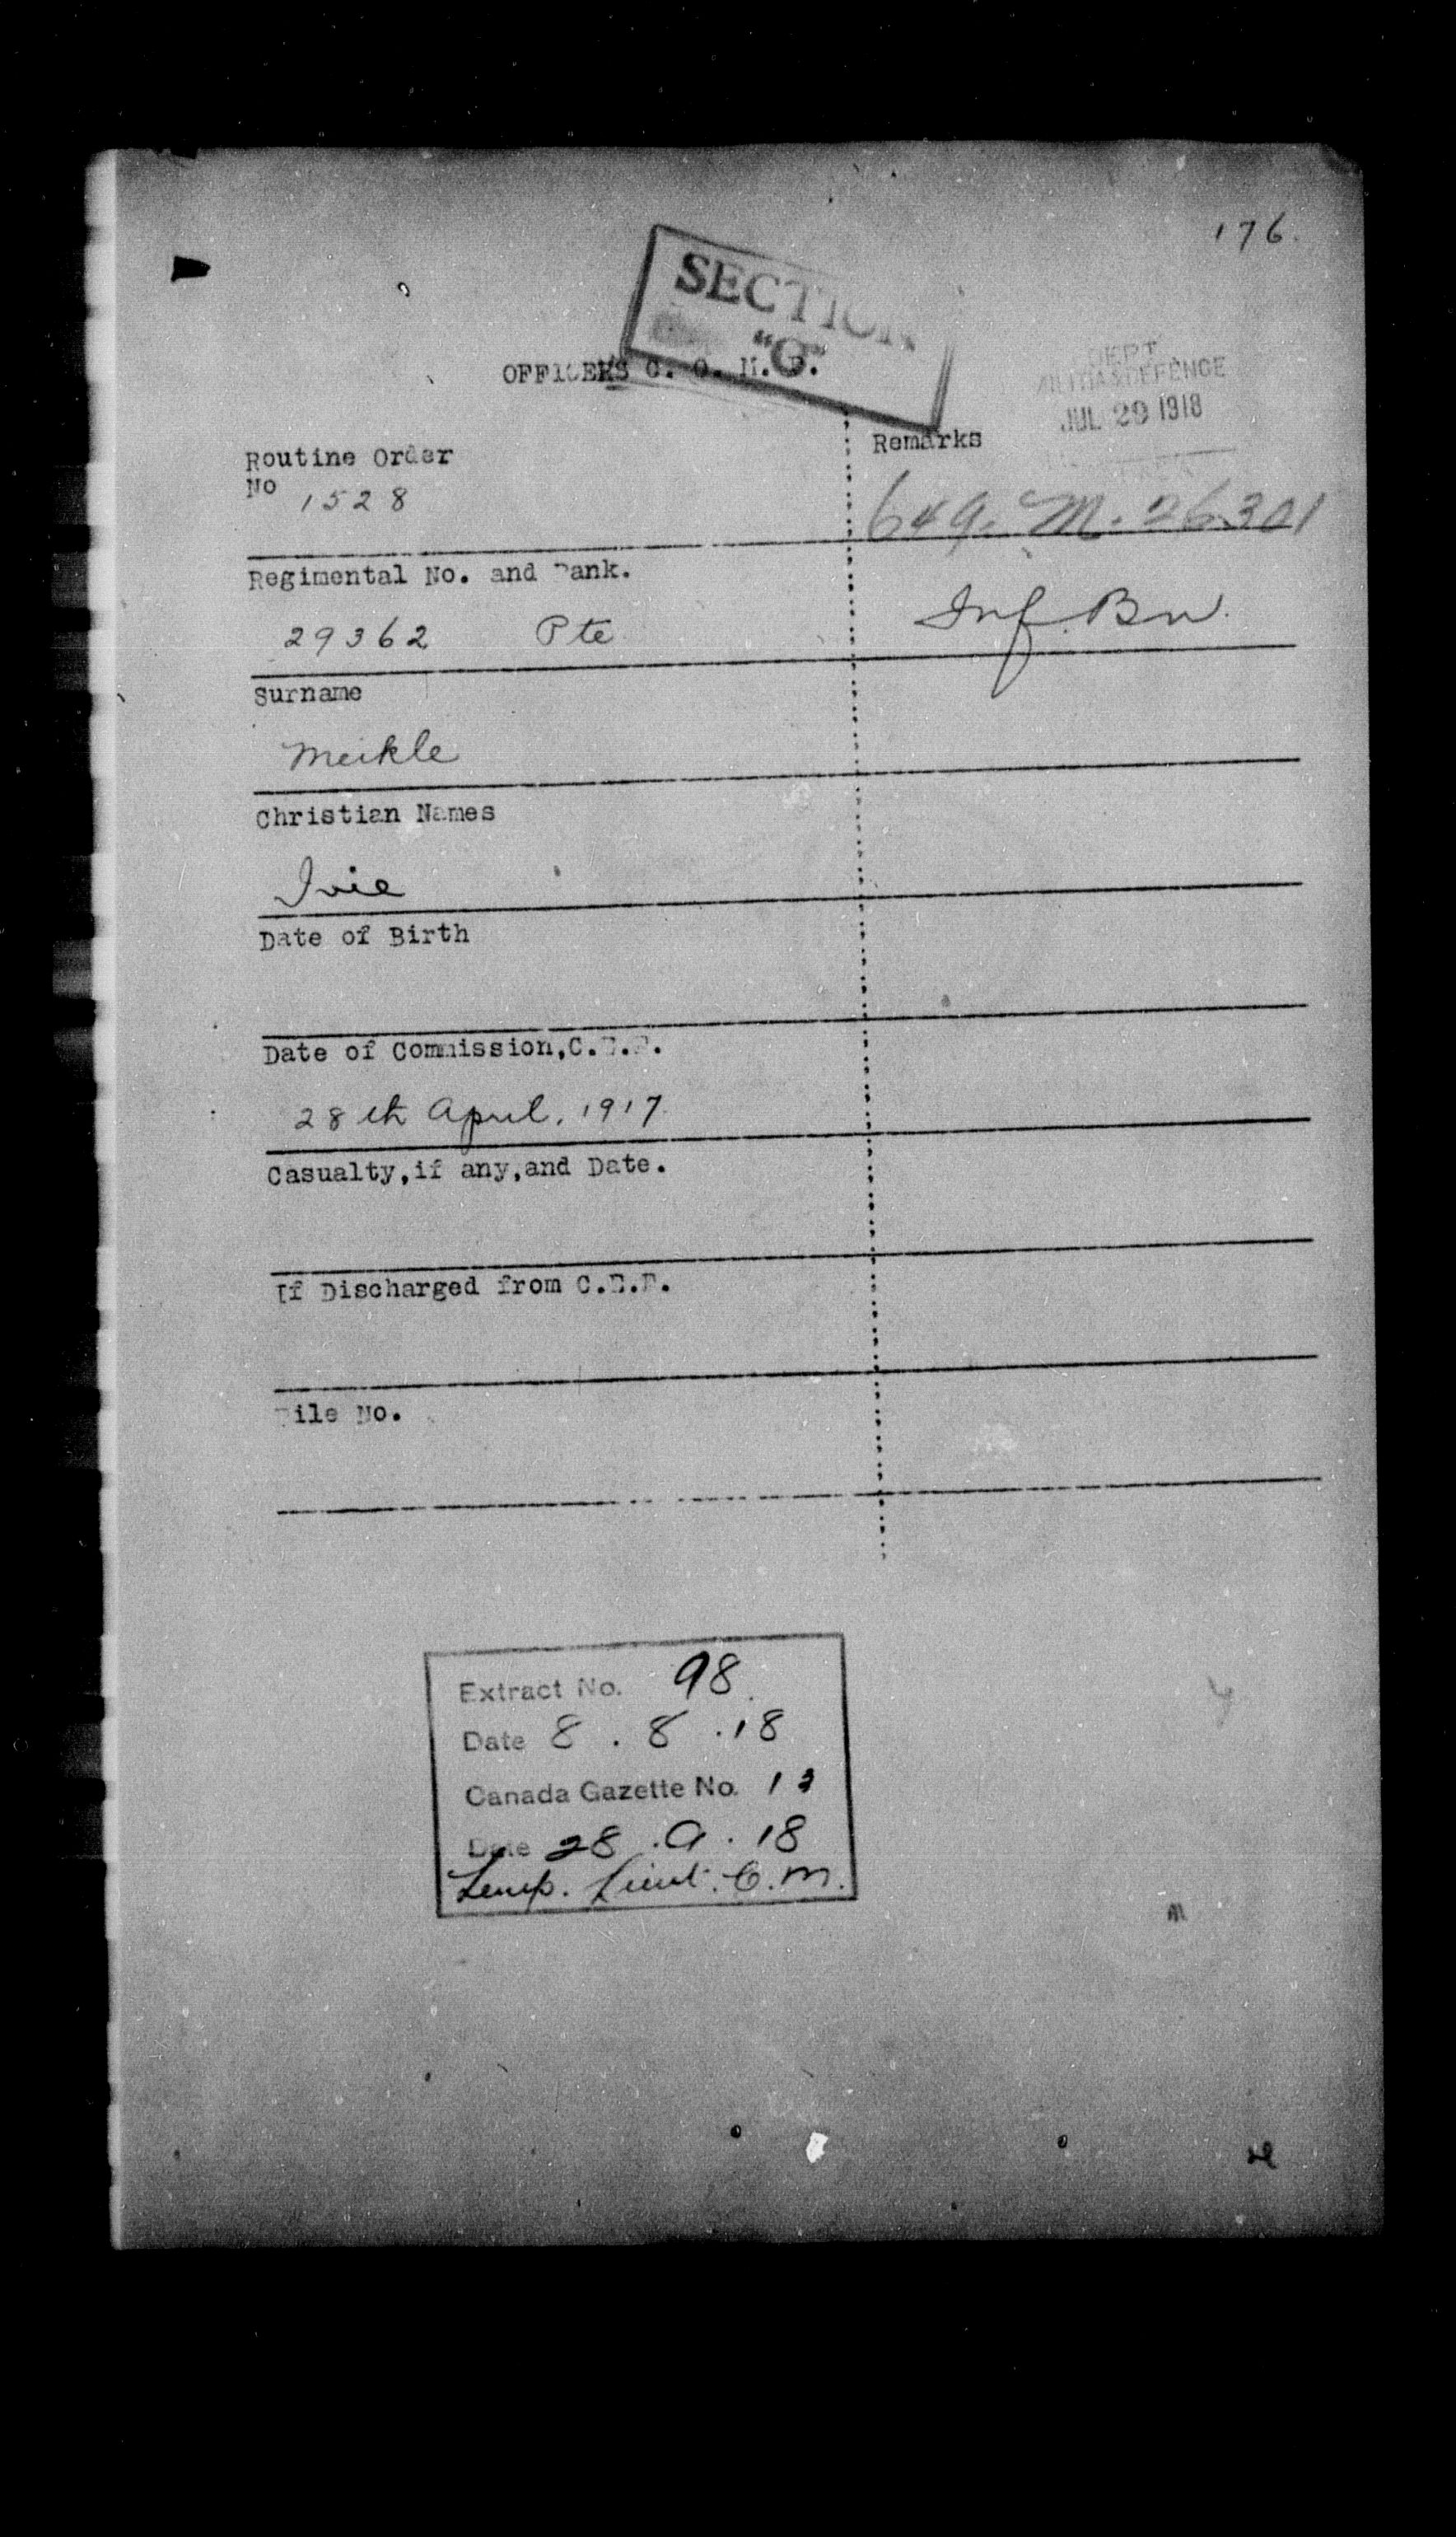 176.
SECTION
"G"
OFFICERS C. O. M. F.
DEPT.
MILITIA & DEFENCE
JUL 29 1918
Routine Order
No 1528
Remarks
649. M. 26301
Regimental No. and Rank.
29362 Pte
Inf. Bn.
Surname
Meikle
Christian Names
Ivie
Date of Birth
Date of Commission, C.E.F.
28th April, 1917.
Casualty, if any, and Date.
If Discharged from C.E.F.
File No.
Extract No. 98.
Date 8 . 8 . 18
Canada Gazette No.
Date 28 . 9 . 18
Temp. Lieut. C.M.